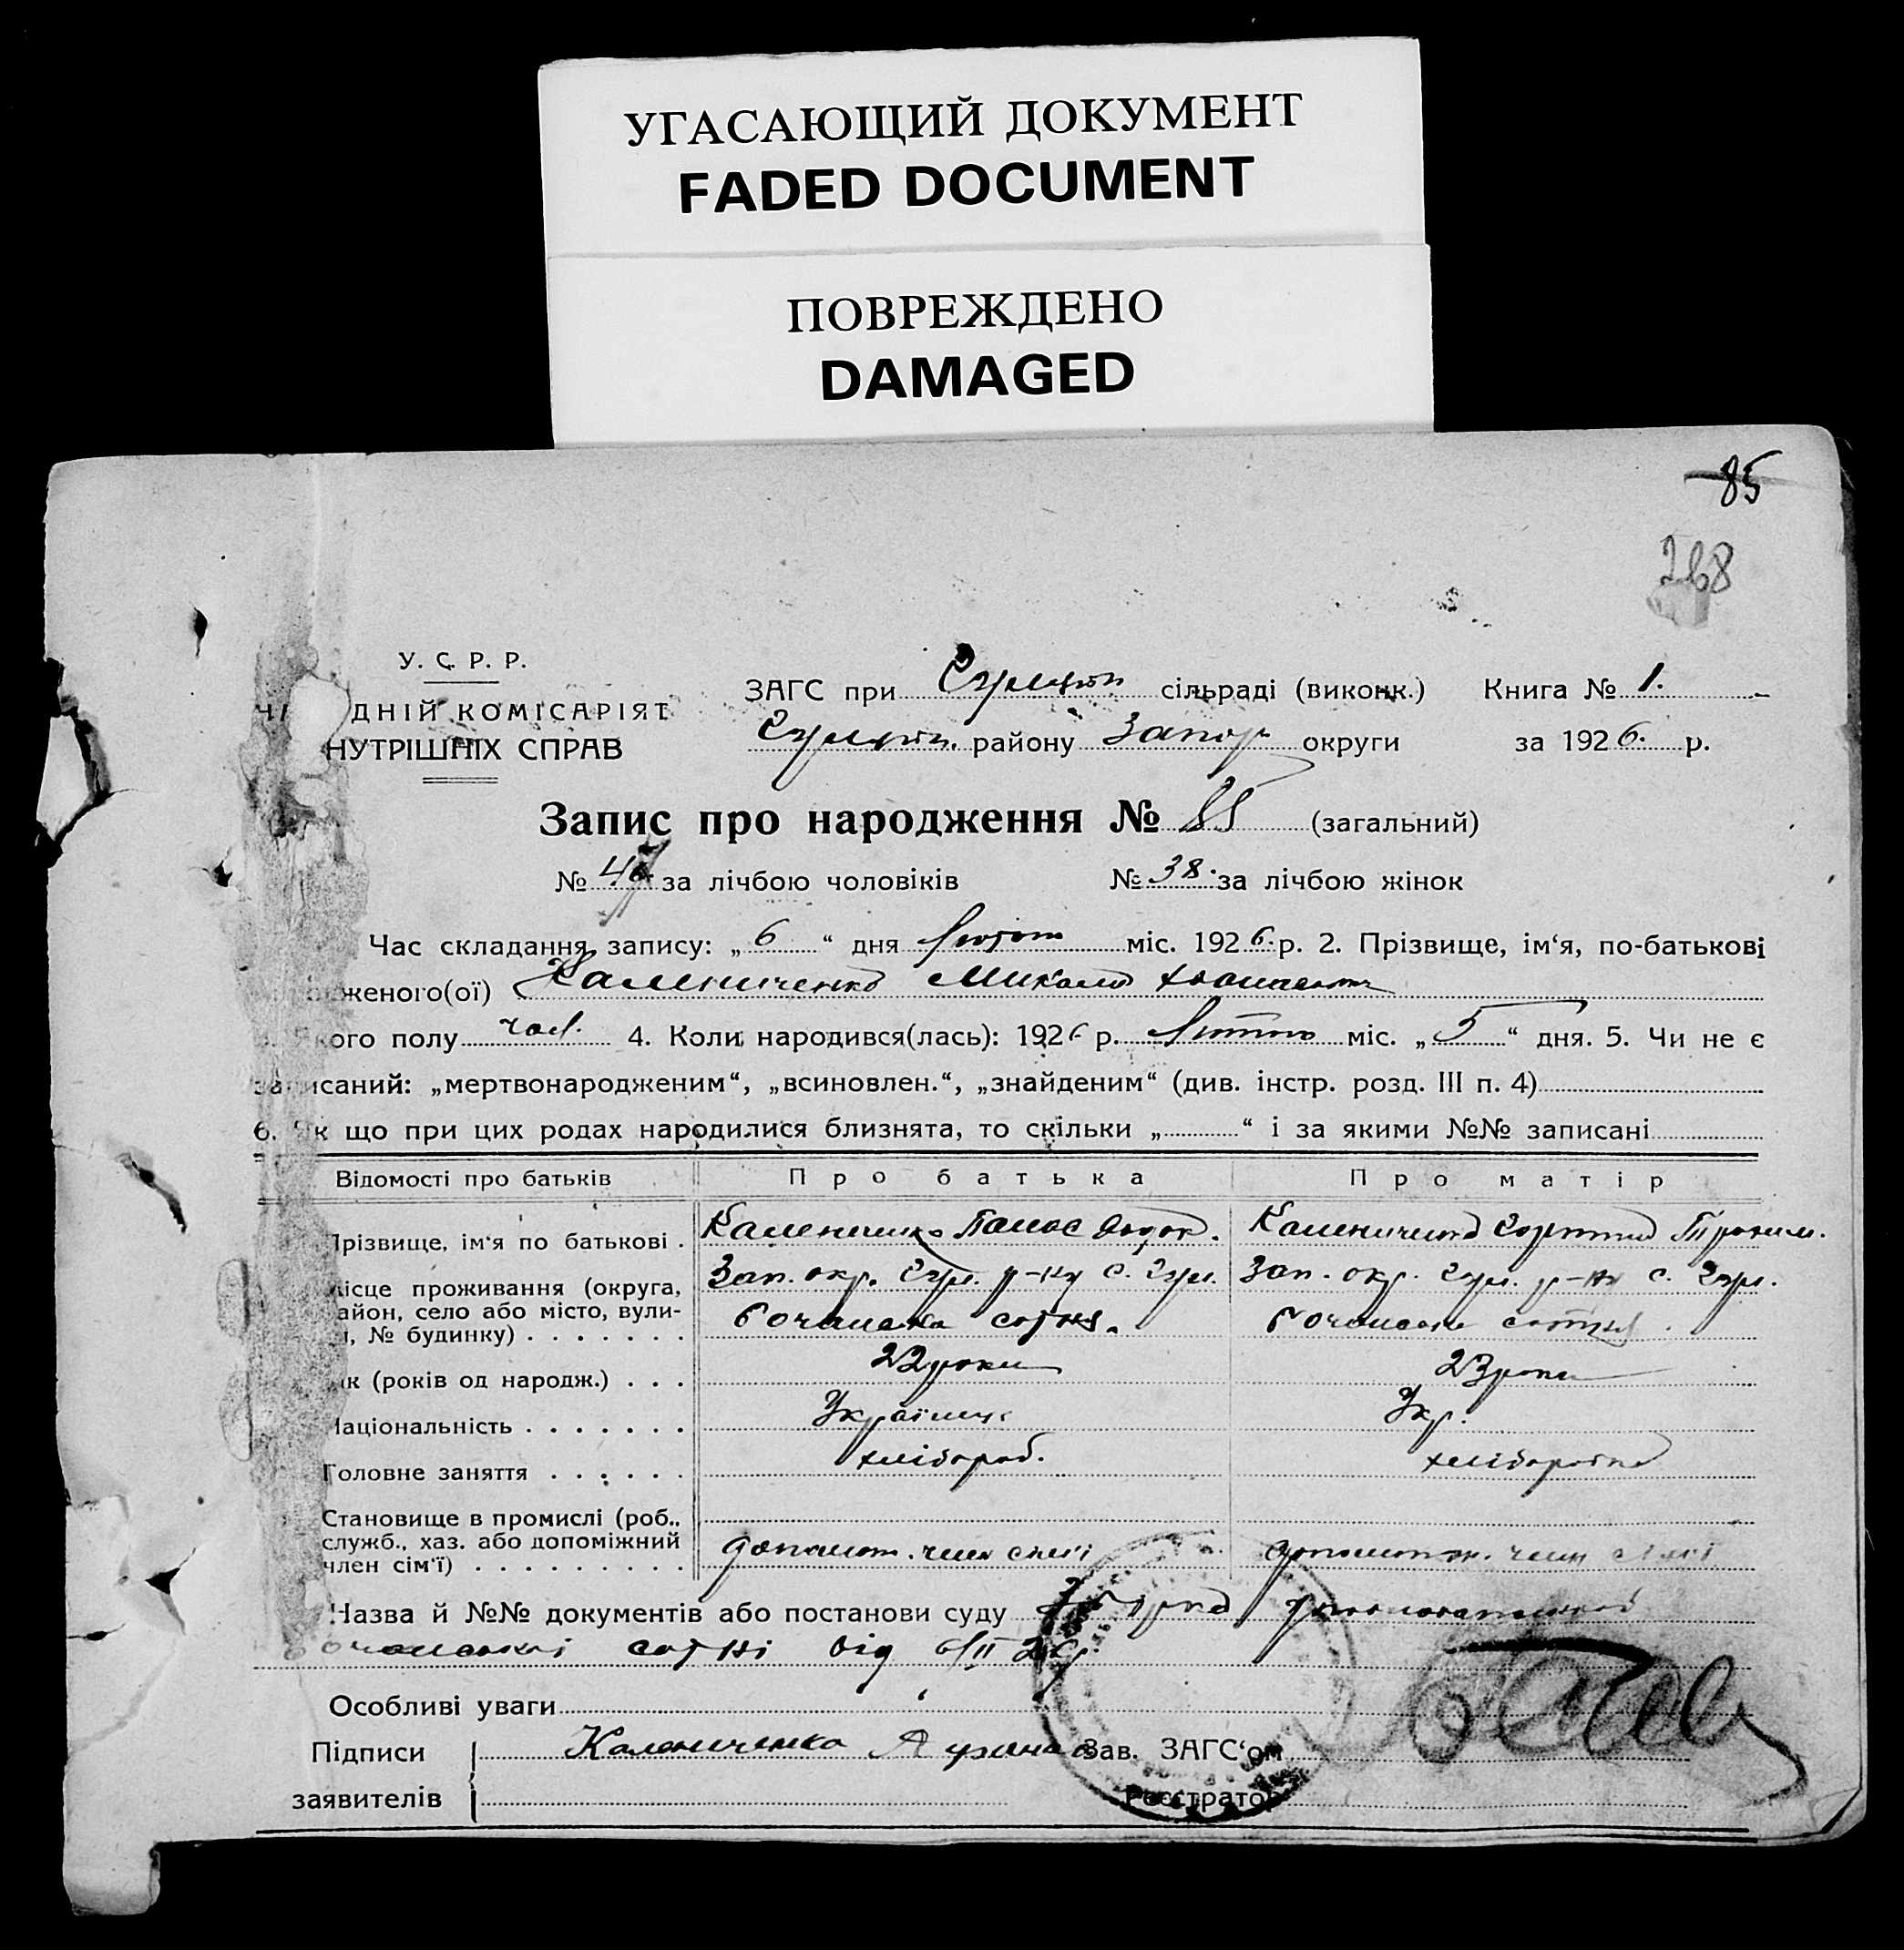 УГАСАЮЩИЙ ДОКУМЕНТ
FADED DOCUMENT
ПОВРЕЖДЕНО
DAMAGED
85
268
У. С. Р. Р.
ДНІЙ КОМІСАРІЯТ
НУТРІШНІХ СПРАВ
ЗАГС при сільраді (виконк.) Книга № 1.
району Запор округи за 1926. р.
Запис про народження № 85 (загальний)
№ 47 за лічбою чоловіків № 38. за лічбою жінок
Час складання запису: „6“ дня Лютого міс. 1926. р. 2. Прізвище, ім‘я, по-батькові
женого(ої) Калениченко Микола
кого полу чол. 4. Коли народився(лась): 1926 р. Лютого міс. „5“ дня. 5. Чи не є
записаний: „мертвонародженим“, „всиновлен.“, „знайденим“ (див. інстр. розд. III п. 4)
6. Як що при цих родах народилися близнята, то скільки „ “ і за якими №№ записані
Відомості про батьків Про батька Про матір
Прізвище, ім‘я по батькові . Калениченко Панас Федор. Калениченко
Місце проживання (округа, Зап. окр. р-ну с. Зап. окр. р-ну с.
район, село або місто, вули-
, № будинку) . . . . . . . сотня. сотня.
ік (років од народж.) . . . 22 роки 23 роки
Національність . . . . . . . Українець Укр.
Головне заняття . . . . . . хлібороб. хліборобка
Становище в промислі (роб.,
служб., хаз. або допоміжний
член сім‘ї) . . . . . . . . . допомож. член сім'ї допоможн. член сім'ї
Назва й №№ документів або постанови суду
сотні від 6/II 26 р.
Особливі уваги
Підписи Калениченко Зав. ЗАГС‘ом
заявителів Реєстратор